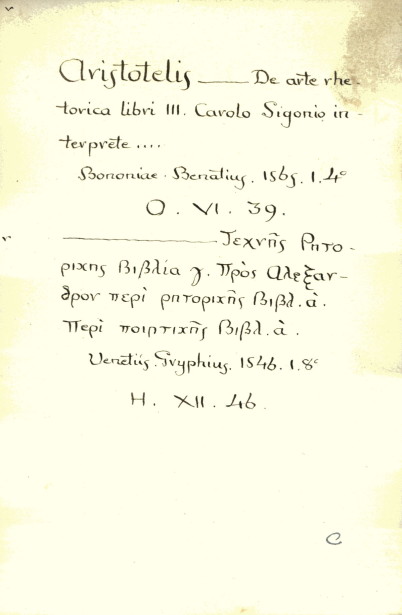 Aristotelis —— De arte rhe-
torica libri III. Carolo Sigonio in-
terprete ....
Bononiae. Benatius. 1565. 1. 4°
O. VI. 39.
———— Τεχνῆς Ρητο-
ρικης Βιβλία γ. Πρὸς Αλεξαν-
δρον περὶ ρητορικῆς Βιβλ. ὰ.
Περὶ ποιητικῆς Βιβλ. ὰ.
Venetiis. Gryphius. 1546. 1. 8°
H. XII. 46.
C